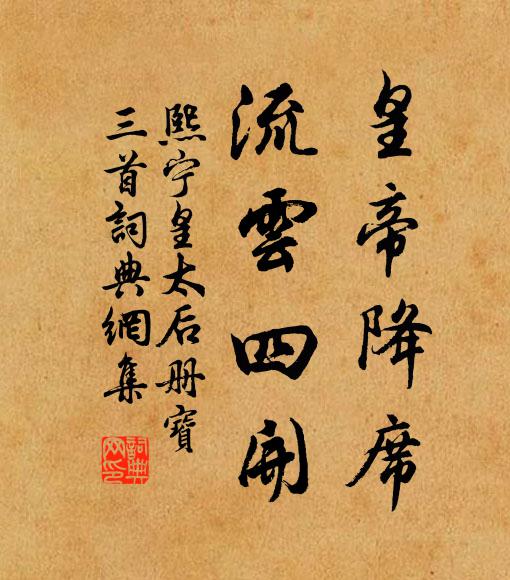 皇帝降席
流雲四開
熙宁皇太后册寶
三首詞典網集
詞典網印